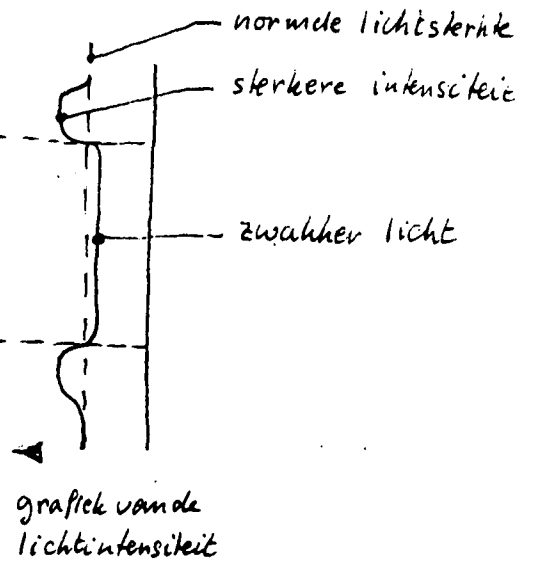 normale lichtsterkte
sterkere intensiteit
zwakker licht
grafiek van de
lichtintensiteit